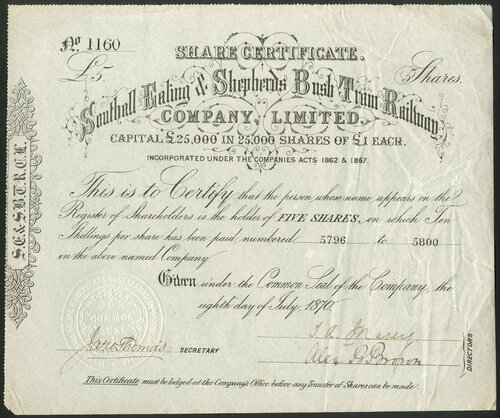 No 1160
SHARE CERTIFICATE.
£5. Shares.
Southall Ealing & Shepherds Bush Tram Railway
COMPANY, LIMITED.
CAPITAL £25,000 IN 25,000 SHARES OF £1 EACH.
INCORPORATED UNDER THE COMPANIES ACTS 1862 & 1867.
This is to Certify that the person whose name appears on the
Register of Shareholders is the holder of FIVE SHARES, on which Ten
Shillings per share has been paid, numbered 5796 to 5800
in the above named Company.
Given under the Common Seal of the Company, the
eighth day of July, 1870.
COMMON
Thomas SECRETARY
Alex Brown
DIRECTORS
This Certificate must be lodged at the Company's Office before any Transfer of Shares can be made.
S.E.& S.B.T.R.C.L.